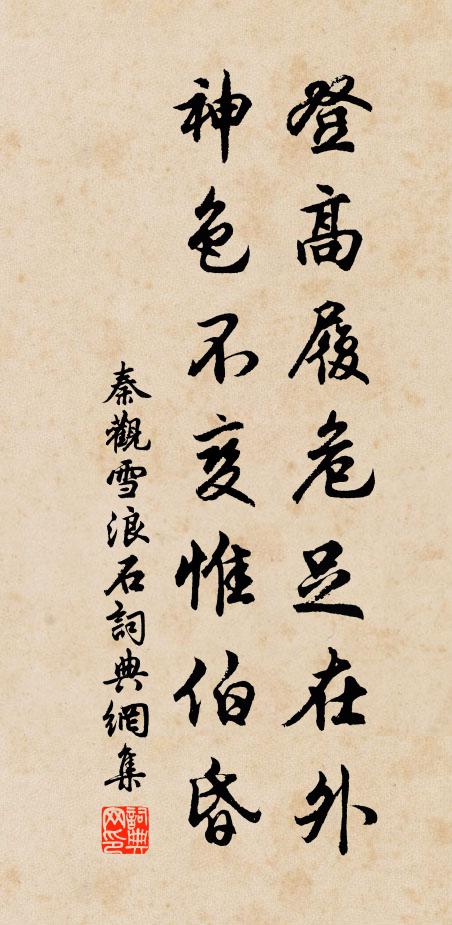 登高履危足在外
神色不变惟伯昏
秦觀雪浪石詞典網集
詞典
网印